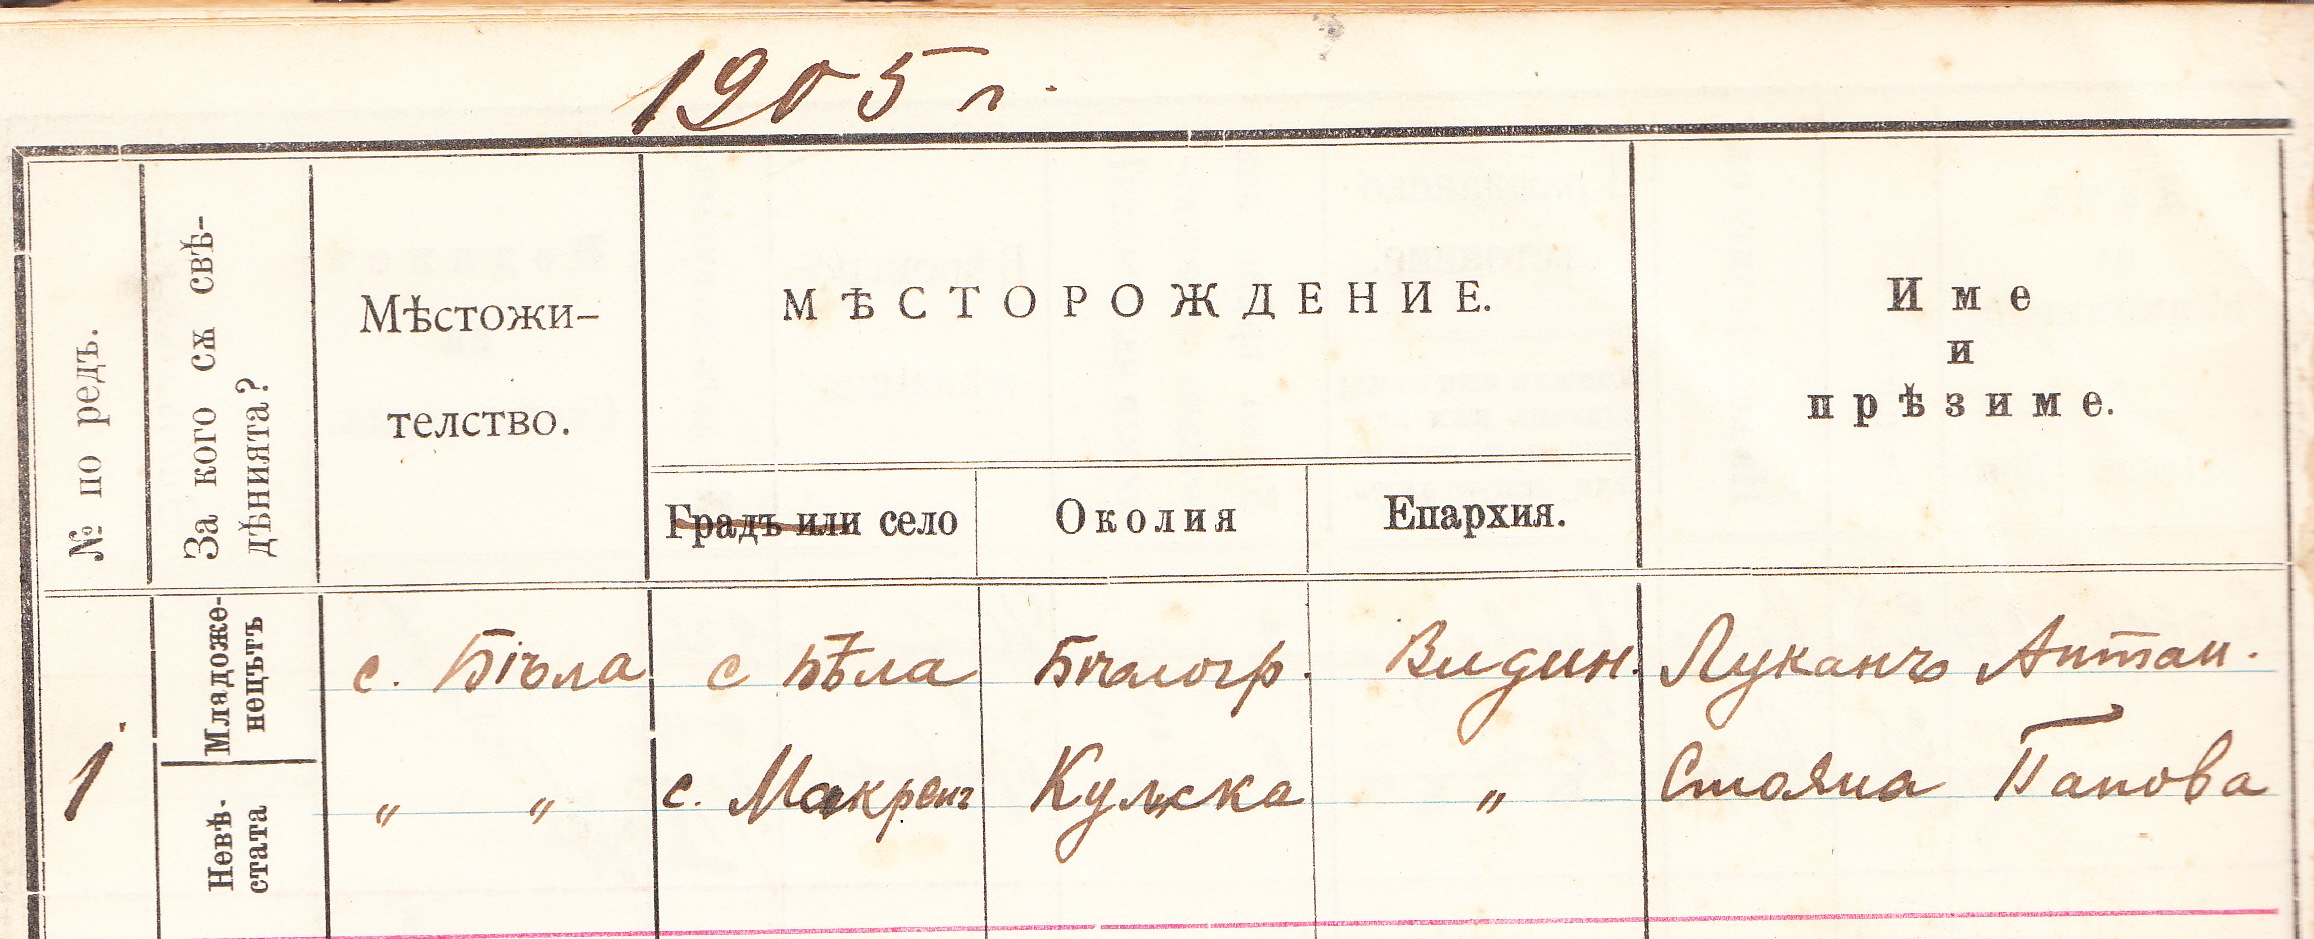 1905 г.
№ по редъ.
За кого сѫ свѣ-
дѣнията?
Мѣстожи-
телство.
МѢСТОРОЖДЕНИЕ.
Име
и
прѣзиме.
Градъ или село
Околия
Епархия.
1
Младоже-
нецътъ
с. Бѣла
с Бѣла
Бѣлогр.
Видин.
Луканъ Антан.
Невѣ-
стата
" "
с.
Кулска
"
Стояна Папова